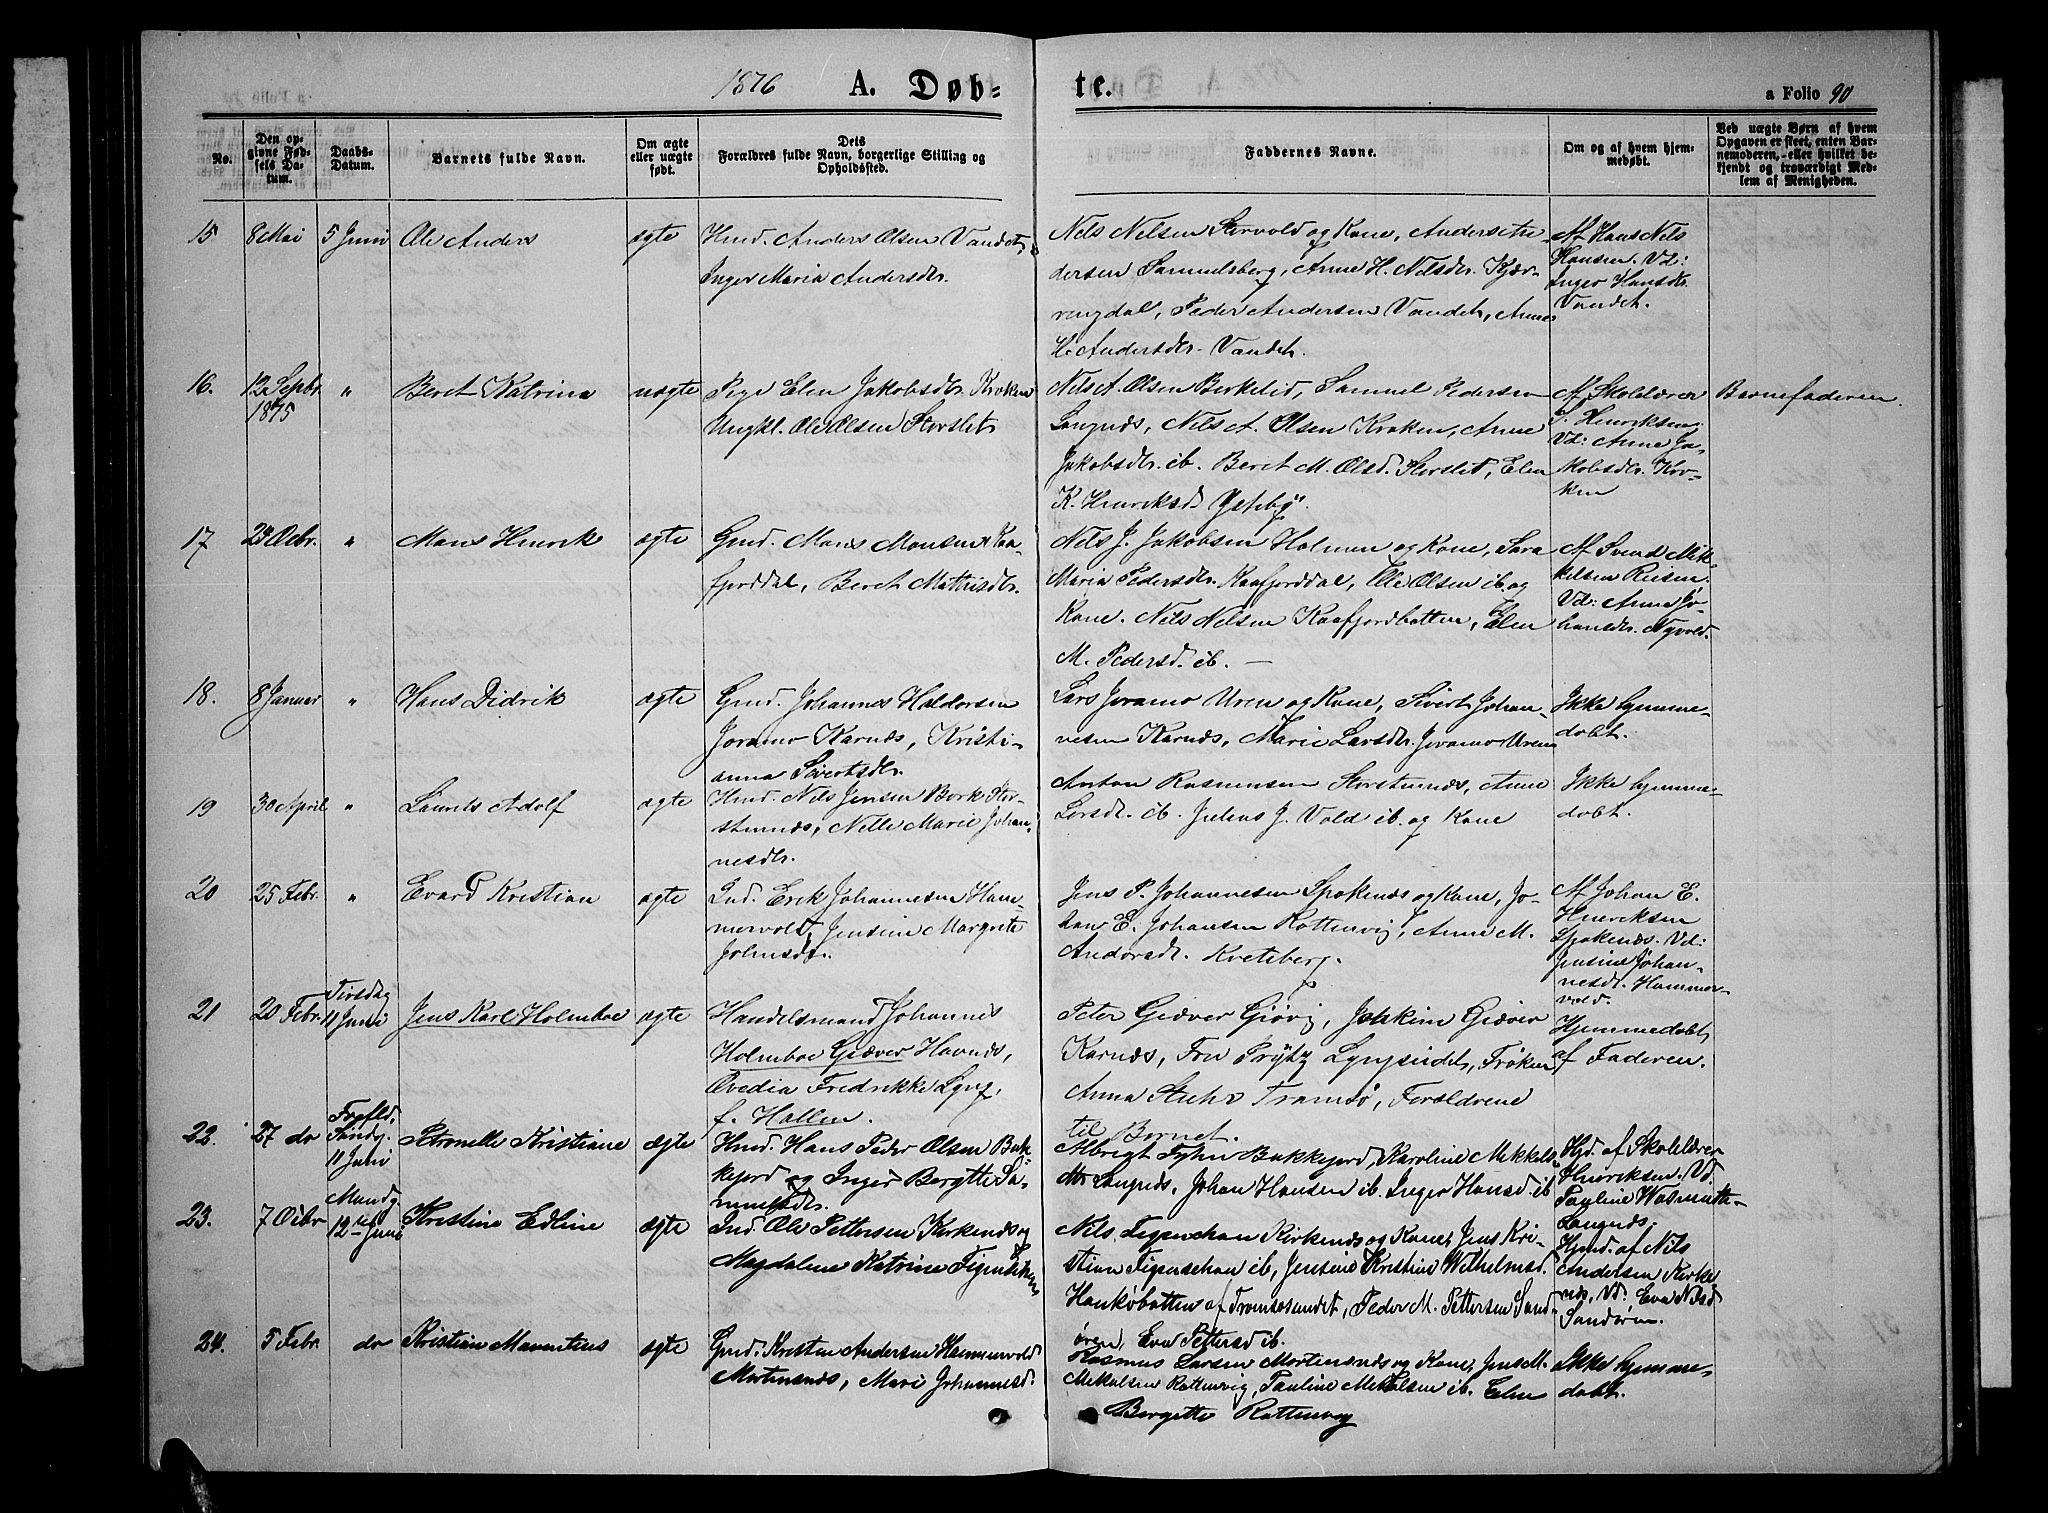 1876 A. Døb= te. a Folio 90
No.
Den op-
givne Fød-
sels Da-
tum.
Daabs-
Datum.
Barnets fulde Navn.
Om ægte
eller uægte
født.
Dets
Forældres fulde Navn, borgerlige Stilling og
Opholdssted.
Faddernes Navne.
Om og af hvem hjem-
medøbt.
Ved uægte Børn af hvem
Opgaven er skeet, enten Bar-
nemoderen, eller hvilket be-
kjendt og troværdigt Med-
lem af Menigheden.
15 8 Mai 5 Juni Ole Anders ægte Hmd. Anders Olsen Vandet,
Inger Maria Andersdtr.
Nels Nelsen Storvold og Kone, Anders An-
dersen Samuelsberg, Anne H. Nelsdtr. Kjær-
ringdal, Peder Andersen Vandet, Anne
H. Andersdtr. Vandet.
Af Hans Nels
Hansen. Vd:
Inger Hansdtr.
Vandet.
16. 12 Septbr. " Beret Katrina uægte Pige Elen Jakobsdtr. Kroken
1875 Ungkl. Ole Olsen Storslet
Nels A. Olsen Birkelid, Samuel Pedersen
Langnæs, Nils A. Olsen Kroken, Anne
Jakobsdtr. ib. Beret M. Olsd. Storslet, Elen
K. Henriksd.
Af Skolelærer
S. Henriksen.
Vd: Anne Ja-
kobsdtr. Kro-
ken
Barnefaderen.
17 23 Debr. " Mons Henrik ægte Gmd. Mons Monsen Kaa-
fjorddal, Beret Mathisdtr.
Nels J. Jakobsen Holmen og Kone, Sara
Maria Pedersdtr. Kaafjorddal, Ole Olsen ib. og
Kone. Nils Nilsen Kaafjordbotten, Elen
M. Pedersd. ib. —
Af Svend Mik-
kelsen Reisen.
Vd: Anne Jo-
hansdtr. Nyvold.
18. 8 Januar " Hans Didrik ægte Gmd. Johannes Haldorsen
Joramo Karnæs, Kristi-
anna Sivertsdtr.
Lars Joramo Uren og Kone, Sivert Johan-
nesen Karnæs, Marie Larsdtr. Joramo Uren
Ikke hjemme-
døbt.
19 30 April " Laurits Adolf ægte Hmd. Nils Jensen Bork Stor-
stennæs, Nelle Marie Johan-
nesdtr.
Anton Rasmusen Storstennæs, Anne
Larsdtr. ib. Julius J. Vold ib. og Kone
Ikke hjemme-
døbt.
20 25 Febr. " Evard Kristian ægte Ind. Erik Johannesen Ham-
mervold, Jensine Margrete
Johnsdtr.
Jens P. Johannesen Spokenæs og Kone, Jo-
han E. Johansen Rottenvig, Anne M.
Andersdtr. Kvetsberg.
Af Johan E.
Henriksen
Spokenæs. Vd:
Jensine Johan-
nesdtr. Hammer-
vold.
21 20 Febr. Tirsdag
11 Juni Jens Karl Holmboe ægte Handelsmand Johannes
Holmboe Giæver Havnæs,
Ovedia Fredrikke Lyng,
f. Hallen.
Peter Giæver Giøvig, Jokkim Giæver
Karnæs, Fru Prytz Lyngseidet, Frøken
Anna Stuhr Tromsø, Forældrene
til Barnet.
Hjemmedøbt
af Faderen.
22. 27 do
Søndg.
11 Juni Petronelle Kristiane ægte Hmd. Hans Peder Olsen Bak-
kejord og Inger Bergitte Sa-
muelsdtr.
Albrigt Fyhn Bakkejord, Karoline Mikkels-
dtr Langnæs, Johan Hansen ib. Inger Hansd ib
Hjd. af Skolelærer
Henriksen. Vd.
Pauline Wasmuth
Langnæs.
23. 7 Mandg.
12te Juni Kristine Edline ægte Ind. Ole Pettersen Kirkenæs og
Magdalene Katrine
Nils Figenschau Kirkenæs og Kone, Jens Kri-
stian Figenschau ib, Jensine Kristine Wilhelmsd.
Hankøbotten af Tromsøsundet, Peder M. Pettersen Sand-
øren, Eva Pettersd ib.
Hjmd. af Nils
Andersen Kirke
næs, Vd: Eva Nilsd
Sandøren.
24. 5 Febr. do Kristine Marentius ægte Gmd. Kristen Andersen Hammervold
Mortensnæs, Mari Johannesd.
Rasmus Larsen Mortensnæs og Kone, Jens M.
Mikalsen Rottenvig, Pauline Mikalsen ib. Elen
Bergitte Rottenvig
Ikke hjemme-
døbt.